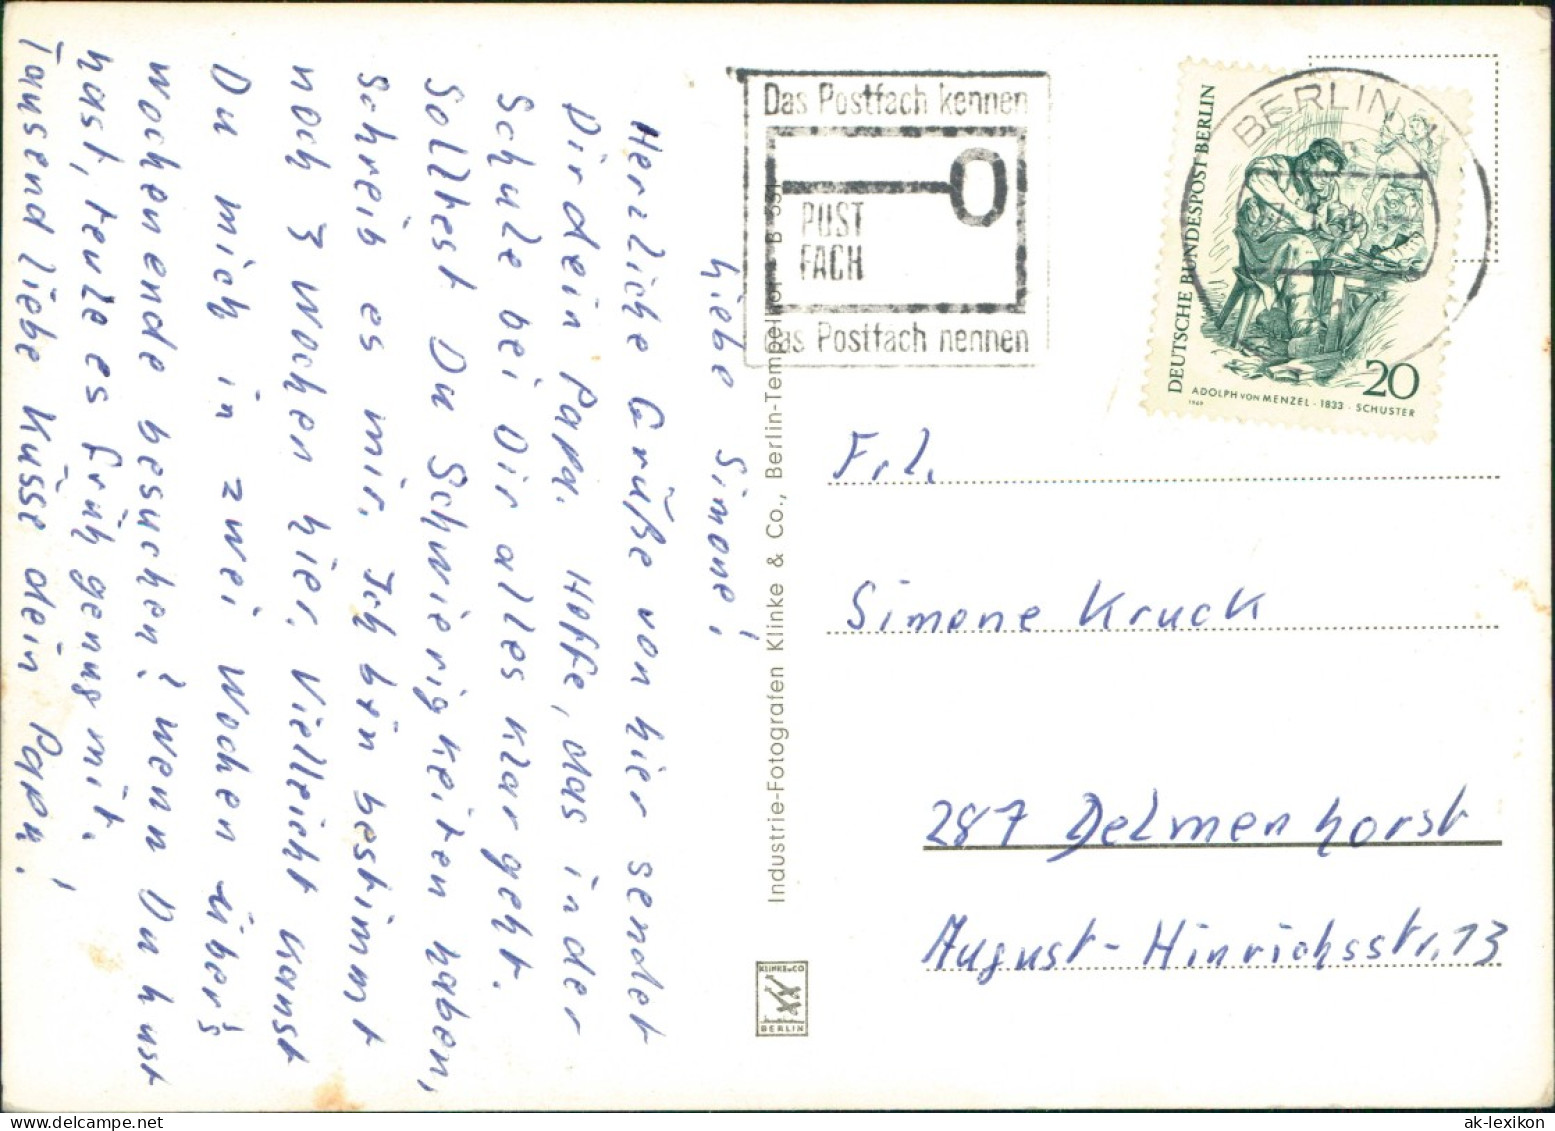 Liebe Simone!
Herzliche Grüße von hier sendet
Dir dein Papa. Hoffe, das in der
Schule bei Dir alles klar geht.
Solltest Du Schwierigkeiten haben,
schreib es mir. Ich bin bestimmt
noch 3 Wochen hier. Vielleicht kanst
Du mich in zwei Wochen über's
Wochenende besuchen? Wenn Du lust
hast, teule es früh genug mit.
Tausend liebe Küsse dein Papa!
Das Postfach kennen
POST
FACH
das Postfach nennen
Industrie-Fotografen Klinke & Co., Berlin-Tempelhof B 551
KLINKE u CO
BERLIN
BERLIN
DEUTSCHE BUNDESPOST BERLIN
20
ADOLPH VON MENZEL · 1833 · SCHUSTER
1969
Frl.
Simone Kruck
287 Delmenhorst
August-Hinrichsstr. 13
ak-lexikon.com